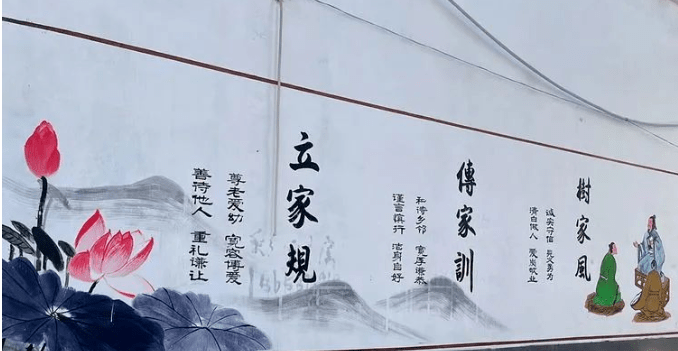 立家規
尊老爱幼 宽容博爱
善待他人 重礼谦让
傳家訓
和谐乡邻 宽厚谦恭
谨言慎行 洁身自好
樹家風
诚实守信 见义勇为
清白做人 爱岗敬业